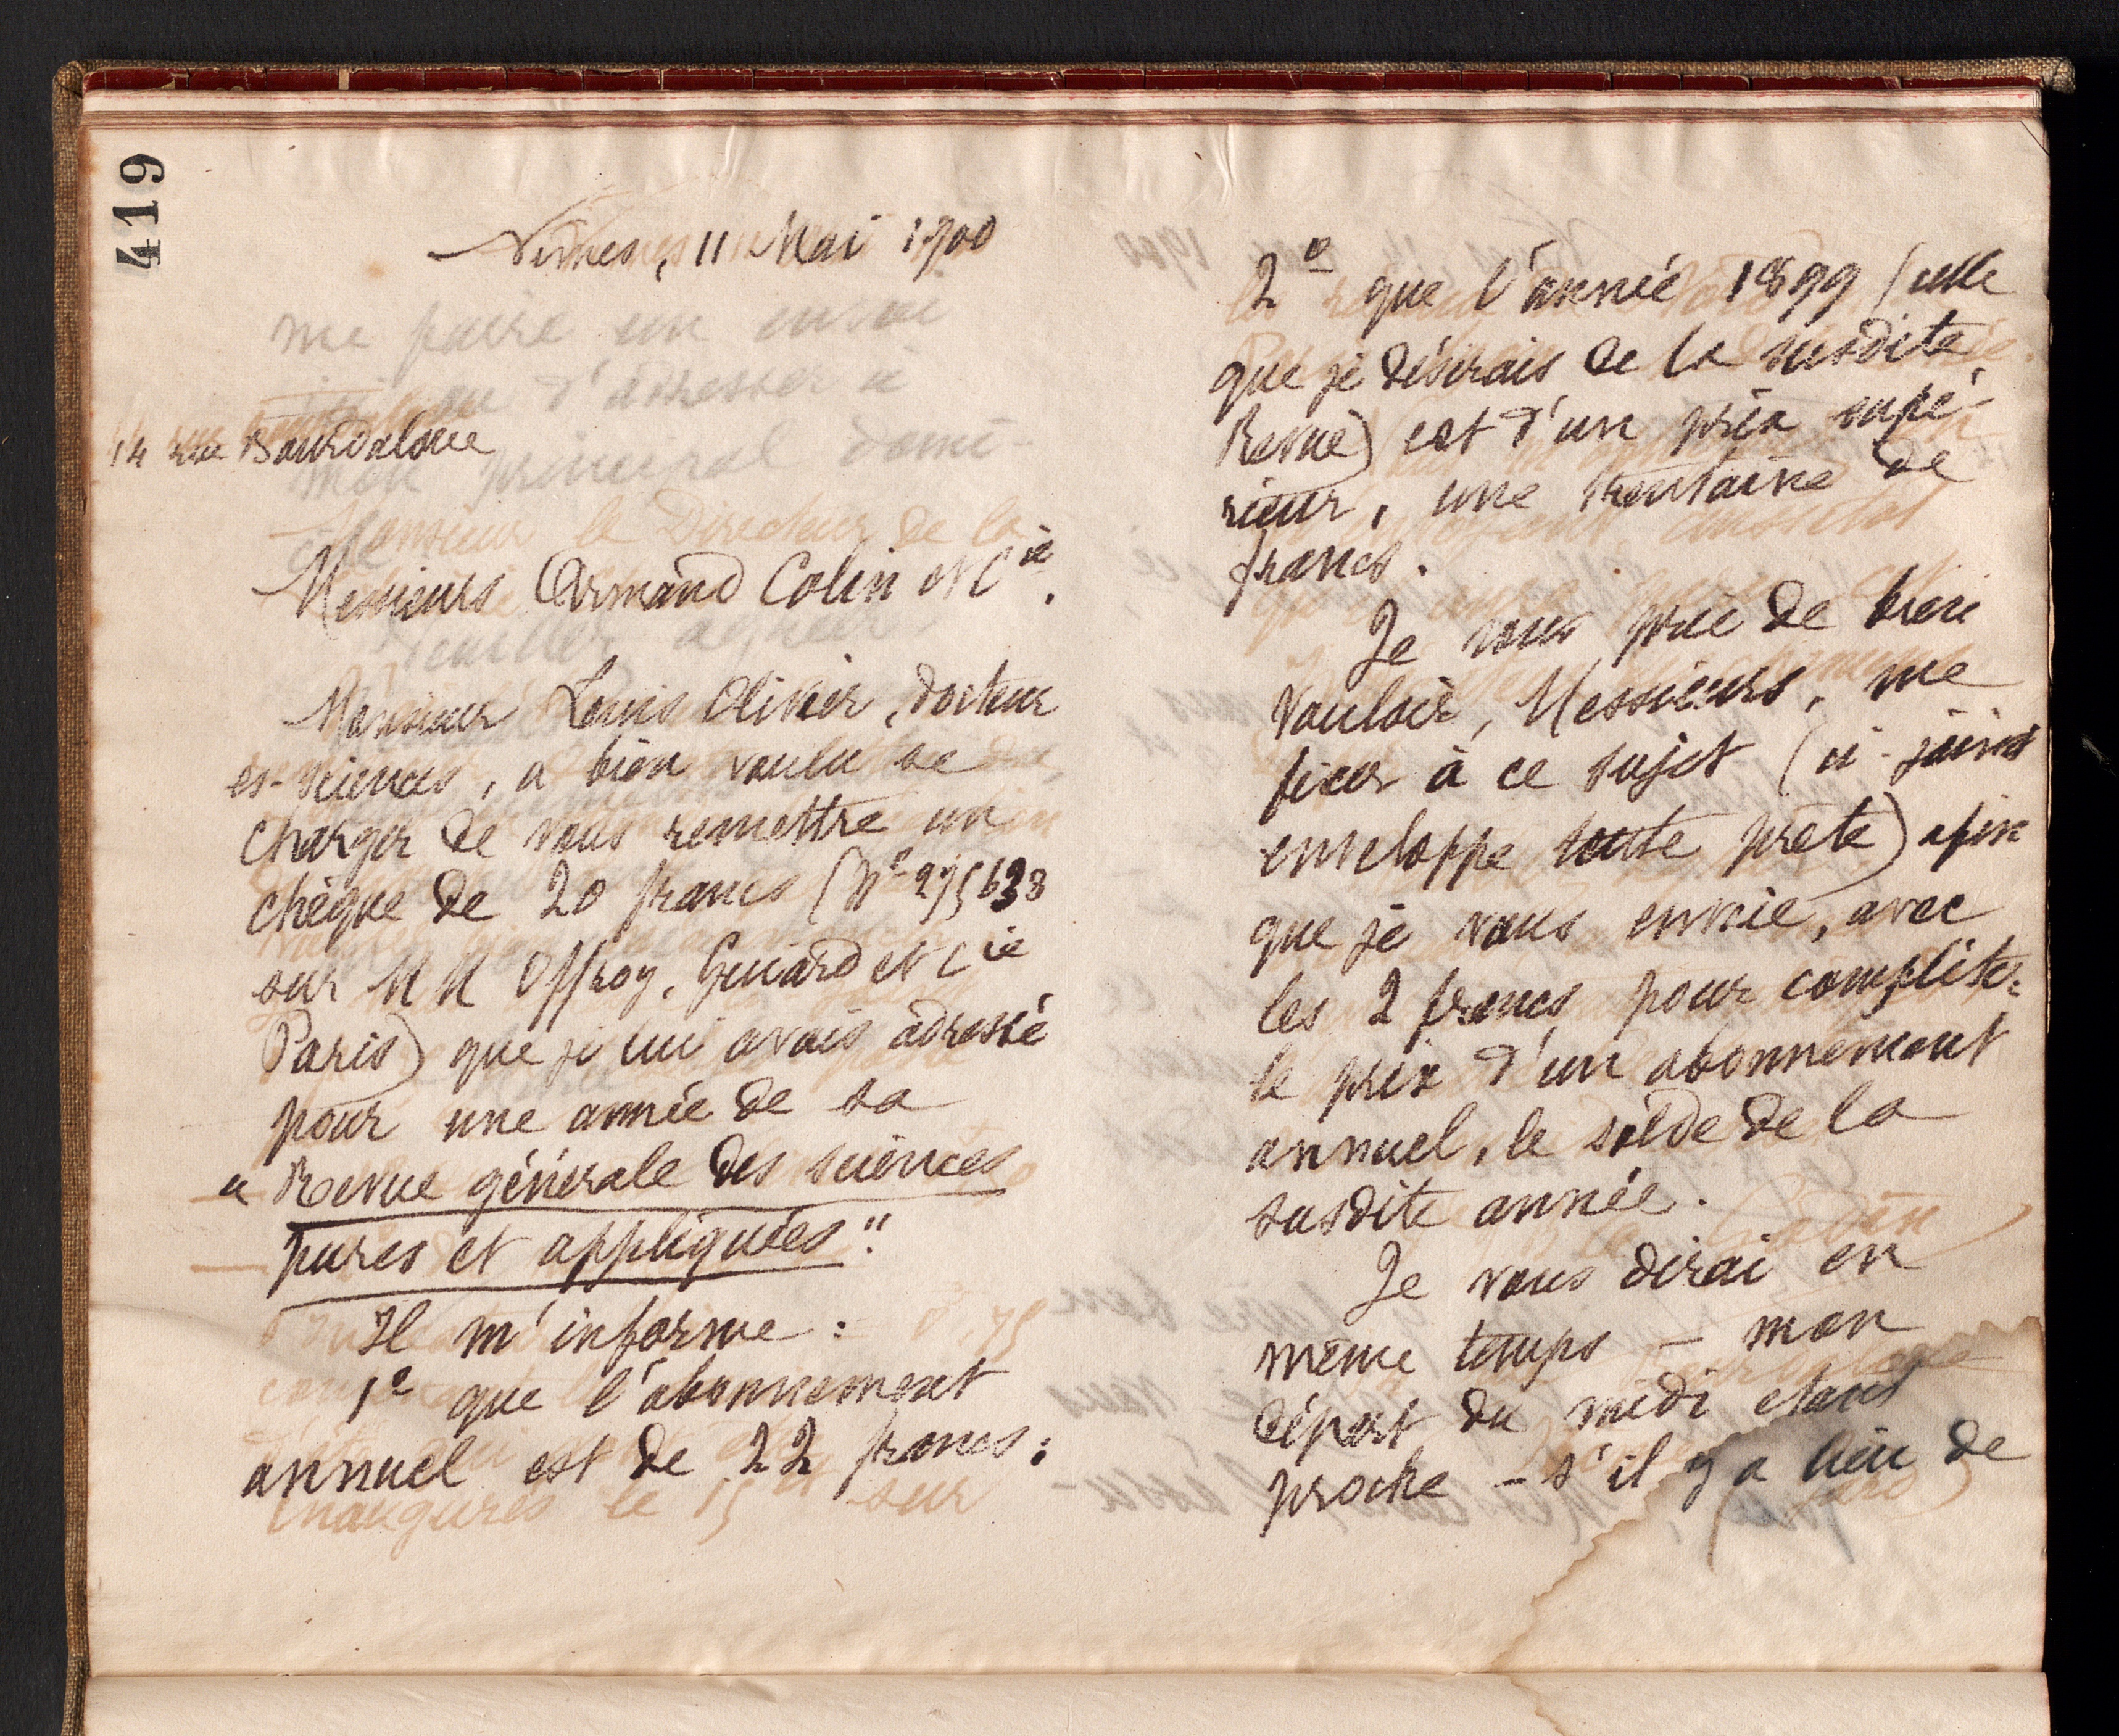 419
Nîmes, 11 Mai 1900
14 rue Bourdaloue
Messieurs Armand Colin et Cie.
Monsieur Louis Olivier, docteur
es-sciences, a bien voulu se
charger de vous remettre un
chèque de 20 francs (No 275638
sur MM Offroy, Guiard et Cie
Paris) que je lui avais adressé
pour une année de sa
"Revue générale des sciences
pures et appliquées".
Il m'informe :
1o que l'abonnement
annuel est de 22 francs;
2o que l'année 1899 (celle
que je désirais de la susdite
Revue) est d'un prix supé-
rieur, une trentaine de
francs.
Je vous prie de bien
vouloir, Messieurs, me
fixer à ce sujet (ci-joint
enveloppe toute prête) afin
que je vous envoie, avec
les 2 francs pour compléter
le prix d'un abonnement
annuel, le solde de la
susdite année.
Je vous dirai en
même temps - mon
départ du midi étant
proche - s'il y a lieu de